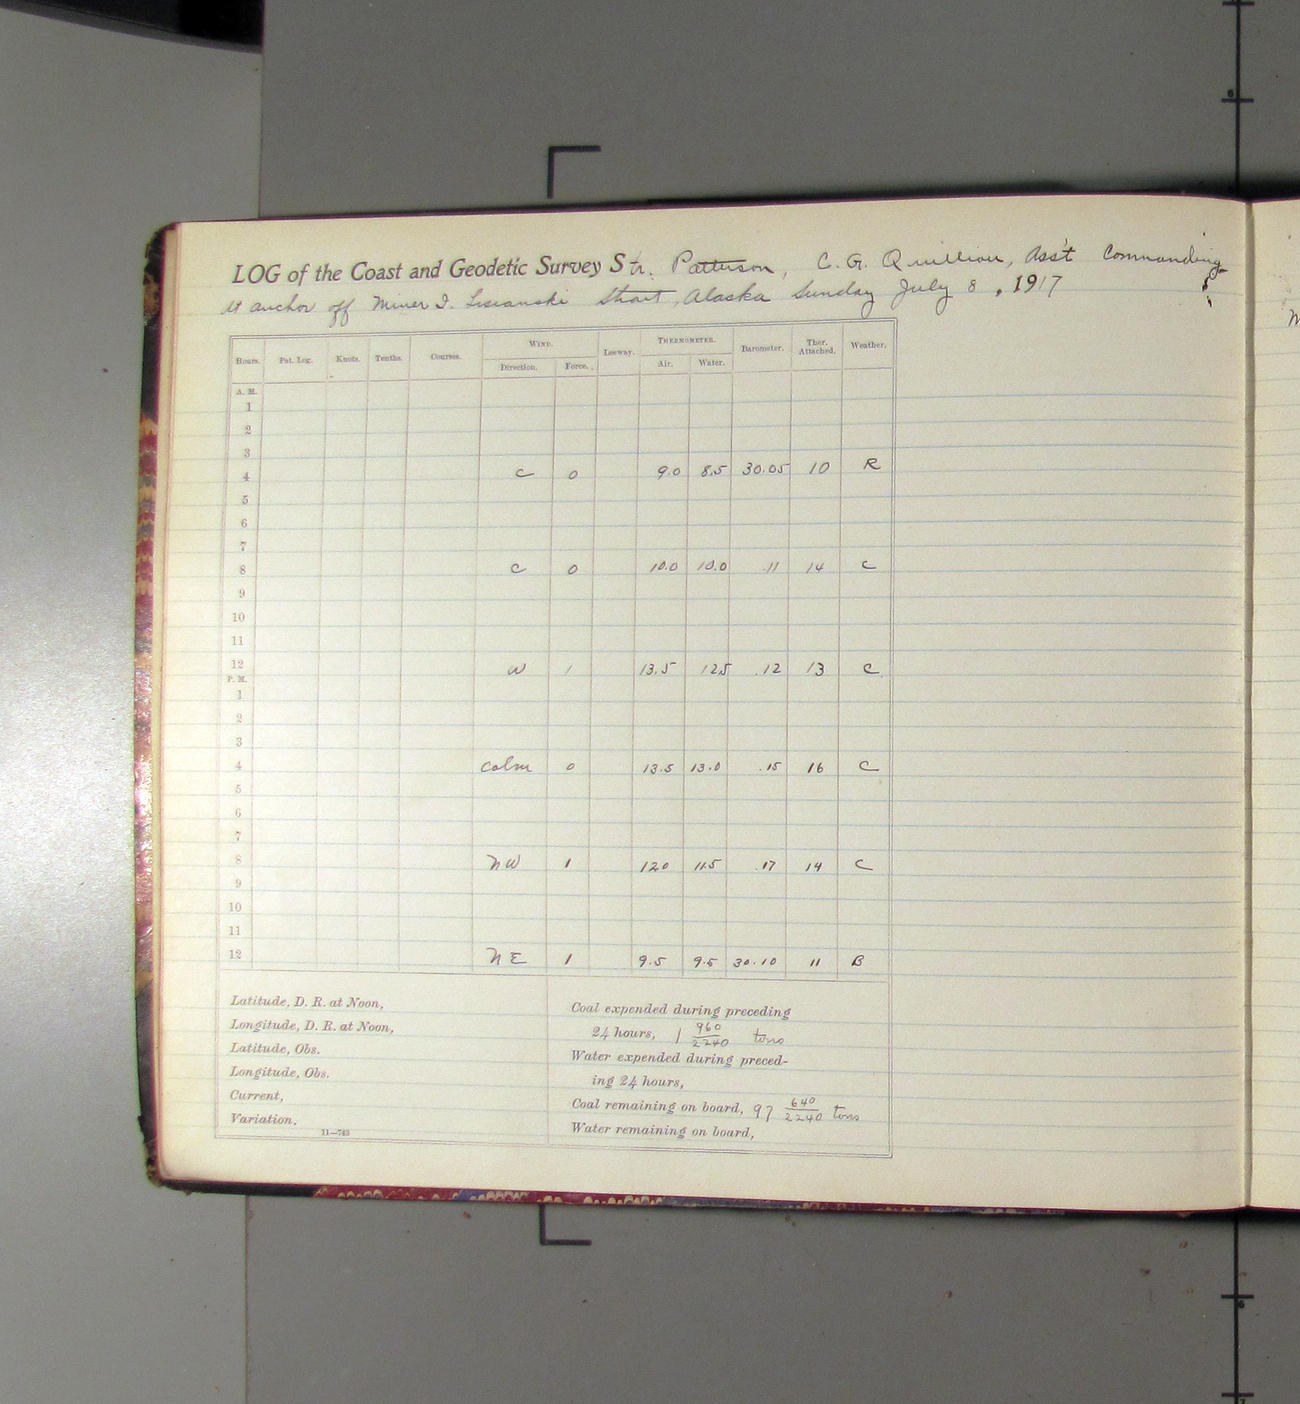 LOG of the Coast and Geodetic Survey Str. Patterson, C. G. Quillian, Ass't Commanding
At anchor off Miner I. Lisianski Strait, Alaska Sunday July 8, 1917
Hours. Pat. Log. Knots. Tenths. Courses. WIND. Leeway. THERMOMETER. Barometer. Ther. Attached. Weather.
Direction. Force. Air. Water.
A. M.
1
2
3
4 C 0 9.0 8.5 30.05 10 R
5
6
7
8 C 0 10.0 10.0 .11 14 C
9
10
11
12 W 1 13.5 12.5 .12 13 C
P. M.
1
2
3
4 Calm 0 13.5 13.0 .15 16 C
5
6
7
8 NW 1 120 11.5 .17 14 C
9
10
11
12 NE 1 9.5 9.5 30.10 11 B
Latitude, D. R. at Noon,
Longitude, D. R. at Noon,
Latitude, Obs.
Longitude, Obs.
Current,
Variation,
11—743
Coal expended during preceding
24 hours, 1 960/2240 tons
Water expended during preced-
ing 24 hours,
Coal remaining on board, 97 640/2240 tons
Water remaining on board,
6
6